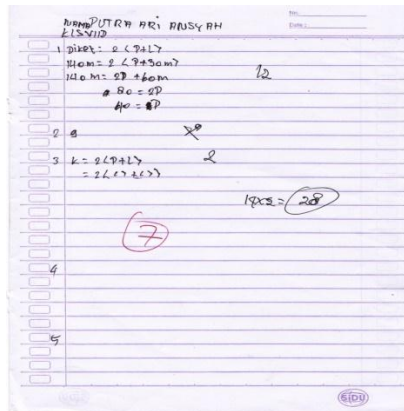 NAMA PUTRA ARI ANSYAH
KLS VIID
No:
Date:
1 Diket = 2 (P+L)
140m = 2 (P+30m)
140m = 2P + 60m
80 = 2P
40 = P
12
2
3 K = 2(P+L)
= 2( )+( ))
2
= 28
7
4
5
SIDU